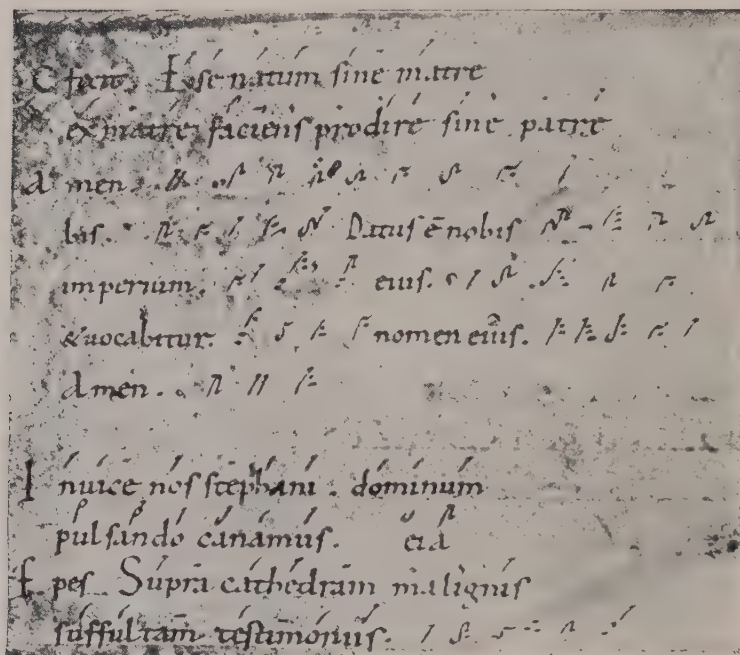 Ipse natum sine matre
ex matre faciens prodire sine patre
A men
bis. Datus ē nobis
imperium. eius.
&uocabitur. nomen eius.
Amen.
I nuice nos stephani . dominum
pulsando canamus. eia
pes Supra cathedram malignis
suffultam testimoniis.